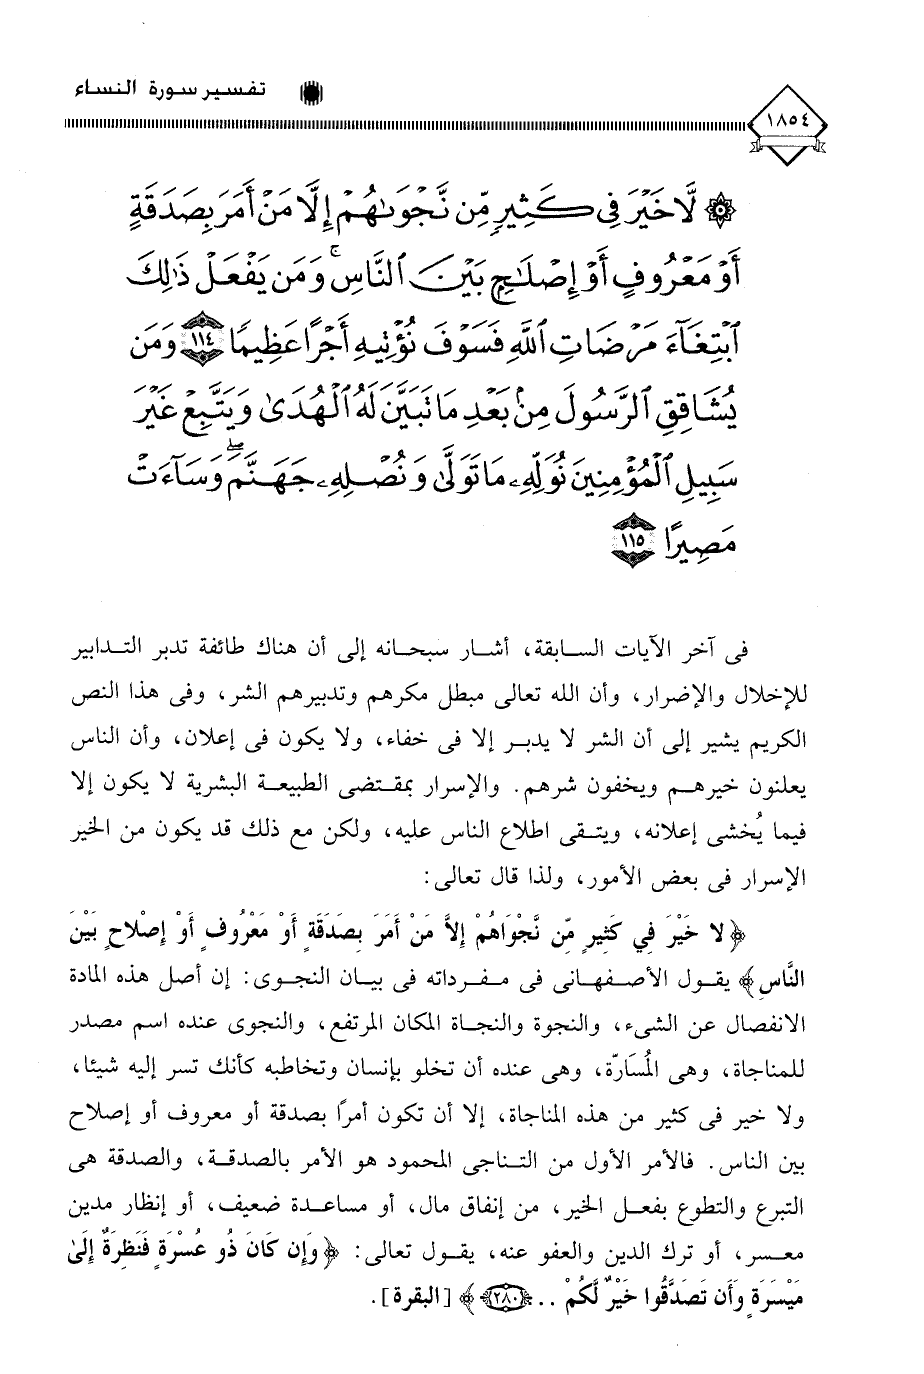 تفسير سورة النساء
١٨٥٤
۞ لَّا خَيْرَ فِى كَثِيرٍ مِّن نَّجْوَىٰهُمْ إِلَّا مَنْ أَمَرَ بِصَدَقَةٍ
أَوْ مَعْرُوفٍ أَوْ إِصْلَـٰحٍۭ بَيْنَ ٱلنَّاسِ ۚ وَمَن يَفْعَلْ ذَٰلِكَ
ٱبْتِغَآءَ مَرْضَاتِ ٱللَّهِ فَسَوْفَ نُؤْتِيهِ أَجْرًا عَظِيمًا ١١٤ وَمَن
يُشَاقِقِ ٱلرَّسُولَ مِنۢ بَعْدِ مَا تَبَيَّنَ لَهُ ٱلْهُدَىٰ وَيَتَّبِعْ غَيْرَ
سَبِيلِ ٱلْمُؤْمِنِينَ نُوَلِّهِۦ مَا تَوَلَّىٰ وَنُصْلِهِۦ جَهَنَّمَ ۖ وَسَآءَتْ
مَصِيرًا ١١٥
فى آخر الآيات السابقة، أشار سبحانه إلى أن هناك طائفة تدبر التدابير
للإخلال والإضرار، وأن الله تعالى مبطل مكرهم وتدبيرهم الشر، وفى هذا النص
الكريم يشير إلى أن الشر لا يدبر إلا فى خفاء، ولا يكون فى إعلان، وأن الناس
يعلنون خيرهم ويخفون شرهم. والإسرار بمقتضى الطبيعة البشرية لا يكون إلا
فيما يُخشى إعلانه، ويتقى اطلاع الناس عليه، ولكن مع ذلك قد يكون من الخير
الإسرار فى بعض الأمور، ولذا قال تعالى:
﴿لا خَيْرَ فِي كَثِيرٍ مِّن نَّجْوَاهُمْ إِلاَّ مَنْ أَمَرَ بِصَدَقَةٍ أَوْ مَعْرُوفٍ أَوْ إِصْلاحٍ بَيْنَ
النَّاسِ﴾ يقول الأصفهانى فى مفرداته فى بيان النجوى: إن أصل هذه المادة
الانفصال عن الشىء، والنجوة والنجاة المكان المرتفع، والنجوى عنده اسم مصدر
للمناجاة، وهى المُسَارّة، وهى عنده أن تخلو بإنسان وتخاطبه كأنك تسر إليه شيئا،
ولا خير فى كثير من هذه المناجاة، إلا أن تكون أمرًا بصدقة أو معروف أو إصلاح
بين الناس. فالأمر الأول من التناجى المحمود هو الأمر بالصدقة، والصدقة هى
التبرع والتطوع بفعل الخير، من إنفاق مال، أو مساعدة ضعيف، أو إنظار مدين
معسر، أو ترك الدين والعفو عنه، يقول تعالى: ﴿وَإِن كَانَ ذُو عُسْرَةٍ فَنَظِرَةٌ إِلَىٰ
مَيْسَرَةٍ وَأَن تَصَدَّقُوا خَيْرٌ لَّكُمْ .. ٢٨٠﴾ [البقرة].